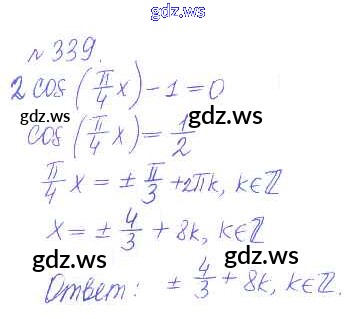 gdz.ws
№ 339.
2 cos (π/4 x) - 1 = 0
gdz.ws gdz.ws
cos (π/4 x) = 1/2
π/4 x = ± π/3 + 2πk, k∈ℤ
gdz.ws
x = ± 4/3 + 8k, k∈ℤ
gdz.ws
Ответ: ± 4/3 + 8k, k∈ℤ.
gdz.ws